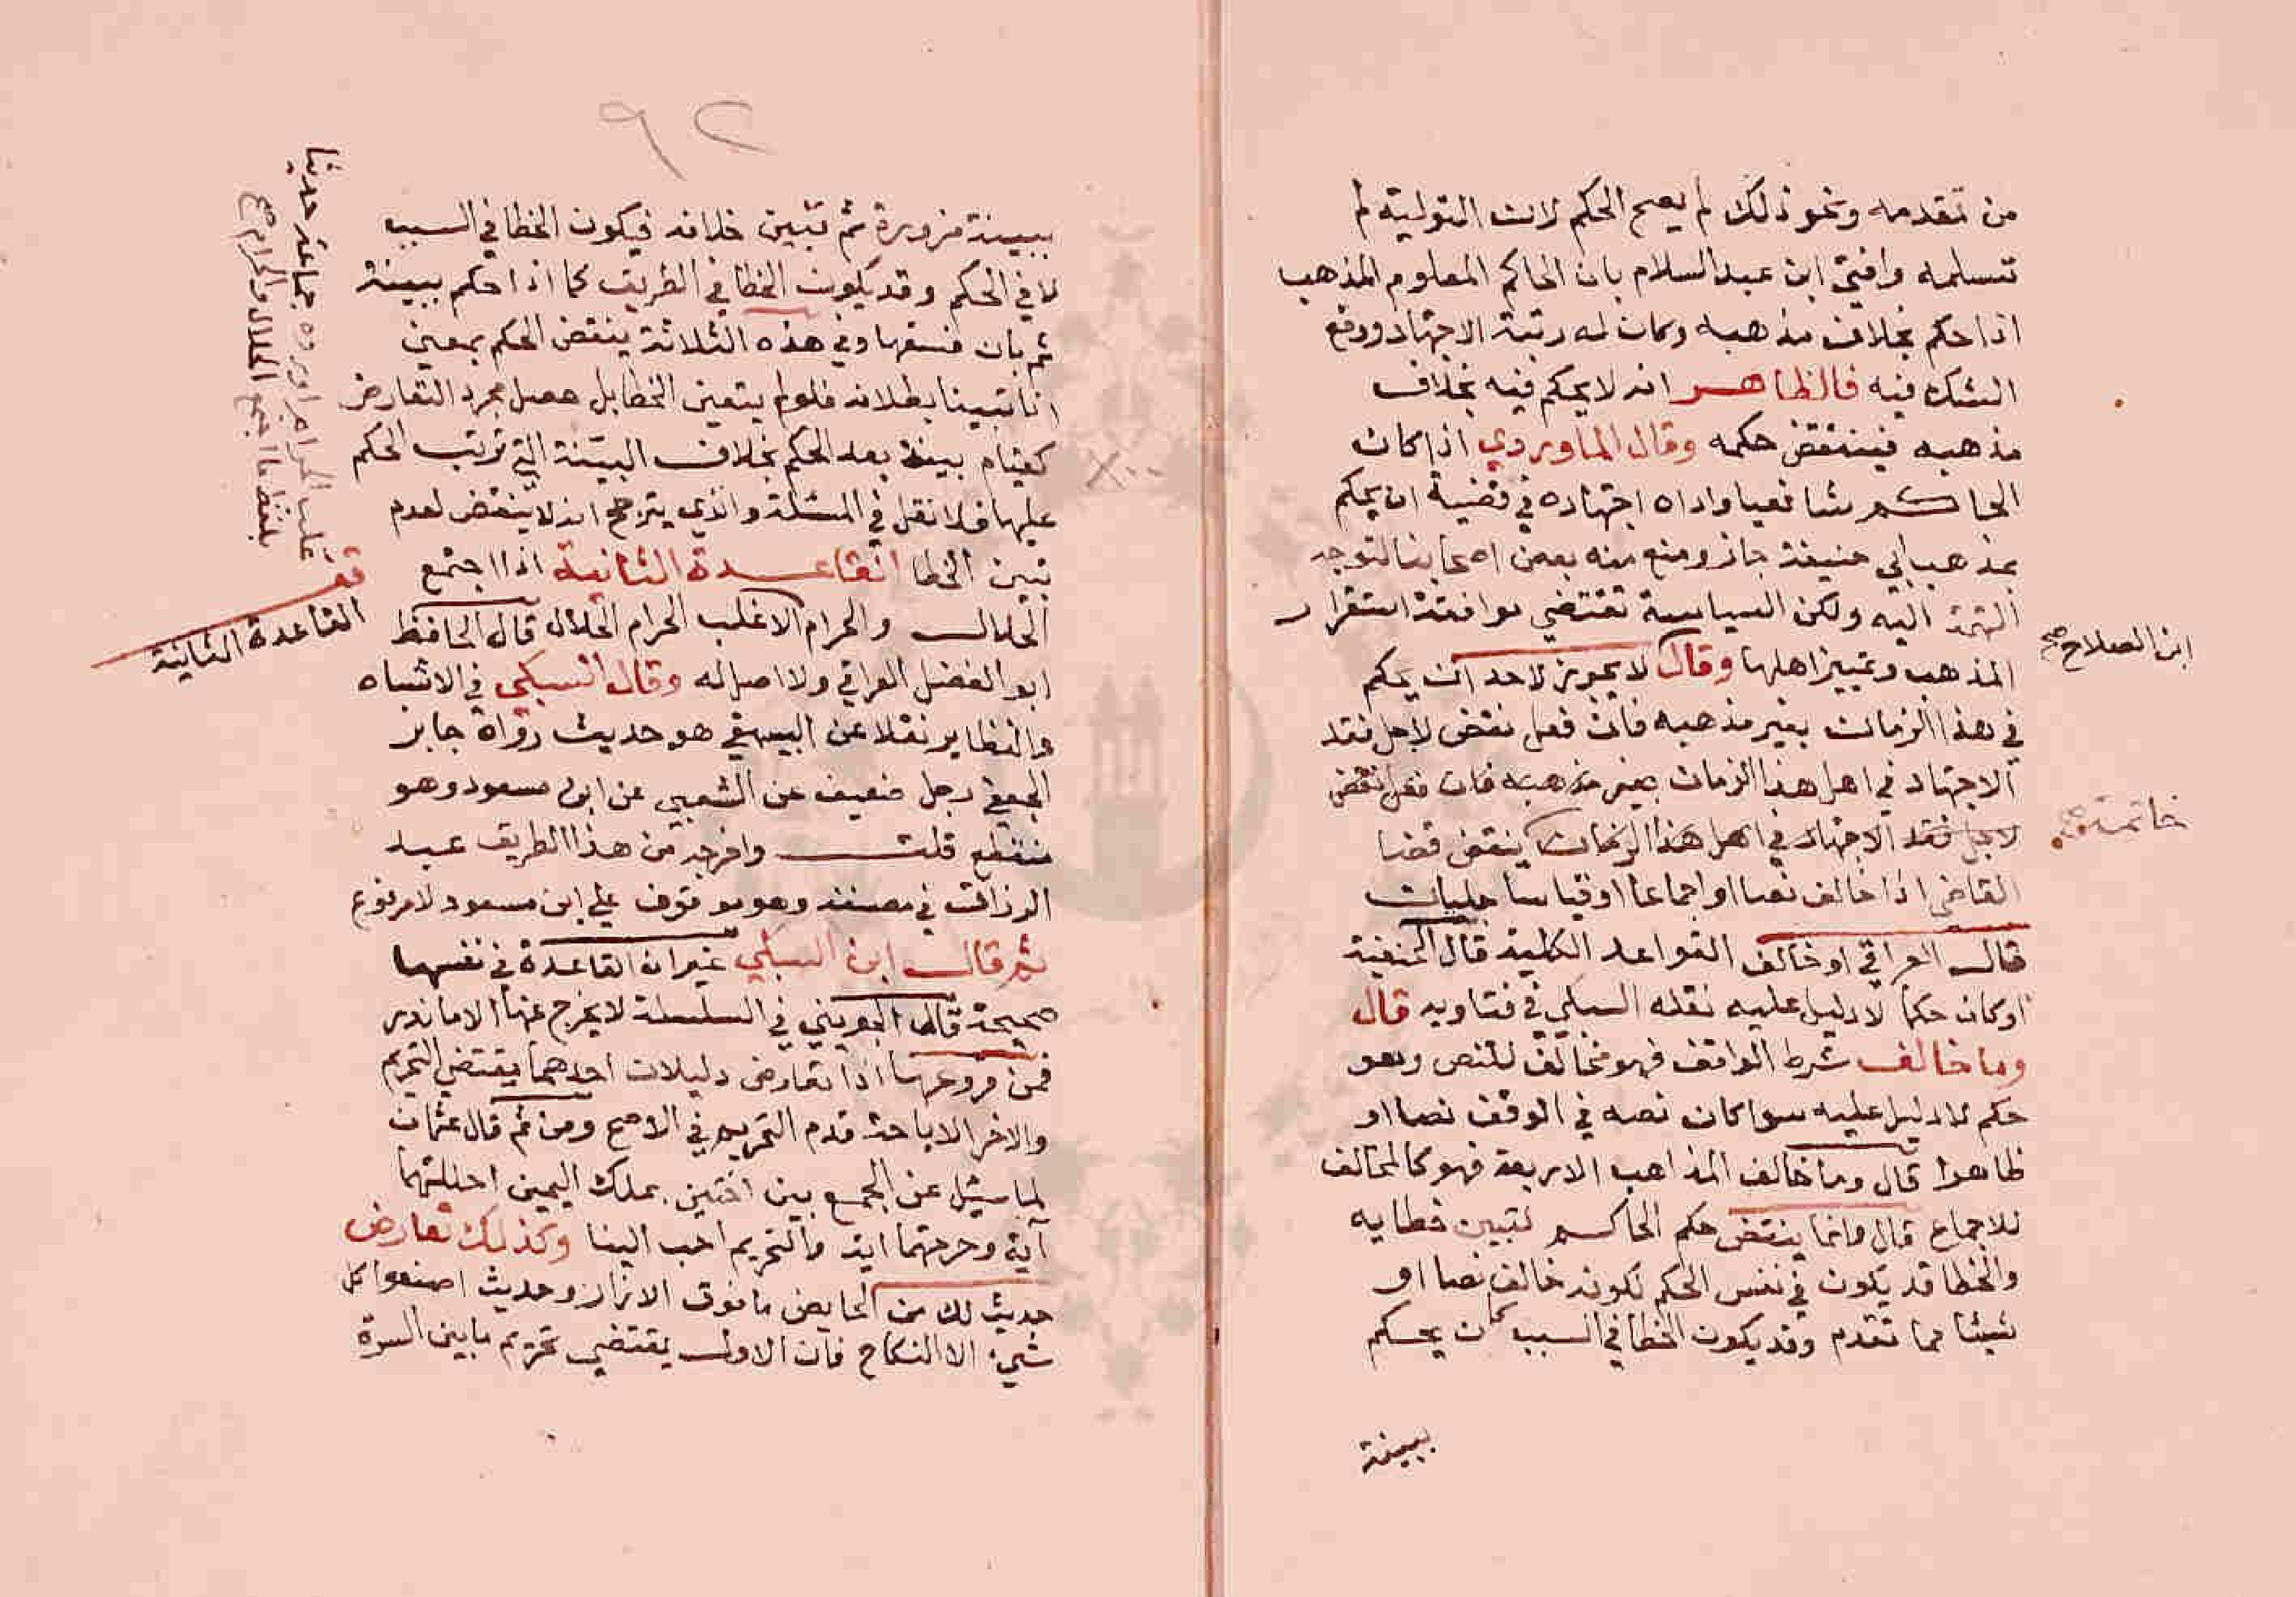 من تقدمه ونحو ذلك لم يصح الحكم لان التولية لم
تتسلمه وافتى ابن عبد السلام بان الحاكم المعلوم المذهب
اذا حكم بخلاف مذهبه وكان له رتبة الاجتهاد ووقع
الشك فيه فالظاهر انه لا يحكم فيه بخلاف
مذهبه فينتقض حكمه وقال الماوردي اذا كان
الحاكم شافعيا واداه اجتهاده في قضية ان يحكم
بمذهب ابي حنيفة جاز ومنع منه بعض اصحابنا لتوجه
التهمة اليه ولكن السياسة تقتضي موافقة استقرار
المذهب وتمييز اهلها وقال لا يجوز لاحد ان يحكم
ابن الصلاح صح
في هذا الزمان بغير مذهبه فان فعل نقض لاجل فقد
الاجتهاد في اهل هذا الزمان بغير مذهبه فان فعل نقض
لاجل فقد الاجتهاد في اهل هذا الزمان ينقض قضا
خاتمة صح
القاضي اذا خالف نصا او اجماعا او قياسا جليا
قال العراقي او خالف القواعد الكلية قال الحنفية
او كان حكما لا دليل عليه نقله السبكي في فتاويه قال
وما خالف شرط الواقف فهو مخالف للنص وهو
حكم لا دليل عليه سوا كان نصه في الوقف نصا او
ظاهرا قال وما خالف المذاهب الاربعة فهو كالمخالف
للاجماع قال وانما ينتقض حكم الحاكم لتبين خطايه
والخطا قد يكون في نفس الحكم لكونه خالف نصا او
شيئا مما تقدم وقد يكون الخطا في السبب كان يحكم
ببينة
٩٢
ببينة مزورة ثم تبين خلافه فيكون الخطا في السبب
لا في الحكم وقد يكون الخطا في الطريق كما اذا حكم ببينة
ثم بان فسقها وفي هذه الثلاثة ينتقض الحكم بمعنى
انا تبينا بطلانه فلو لم يتعين الخطا بل حصل مجرد التعارض
كقيام بينة بعد الحكم بخلاف البينة التي ترتب الحكم
عليها فلا نقل في المسئلة والذي يترجح انه لا ينتقض لعدم
تبين الخطا القاعدة الثانية اذا اجتمع
الحلال والحرام الا غلب الحرام الحلال قال الحافظ
قف
القاعدة الثانية
ابو الفضل العراقي ولا اصل له وقال السبكي في الاشباه
والنظاير نقلا عن البيهقي هو حديث رواه جابر
الجعفي رجل ضعيف عن الشعبي عن ابن مسعود وهو
منقطع قلت واخرجه من هذا الطريق عبد
الرزاق في مصنفه وهو موقوف على ابن مسعود لا مرفوع
ثم قال ابن السبكي غير ان القاعدة في نفسها
صحيحة قال الجويني في السلسلة لا يخرج عنها الا ما ندر
فمن فروعها اذا تعارض دليلان احدهما يقتضي التحريم
والاخر الاباحة قدم التحريم في الاصح ومن ثم قال عثمان
لما سئل عن الجمع بين اختين بملك اليمين احلتهما
آية وحرمتهما اية والتحريم احب الينا وكذلك تعارض
حديث لك من الحايض ما فوق الازار وحديث اصنعوا كل
شيء الا النكاح فان الاول يقتضي تحريم ما بين السرة
اورده جماعة حديثا
بلفظ ما اجتمع الحلال والحرام